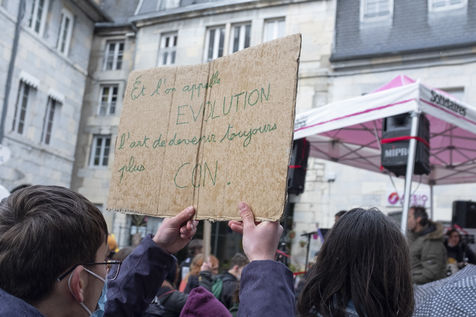 Et l'on appelle
EVOLUTION
l'art de devenir toujours
plus CON.
Solidaires
MIPRO